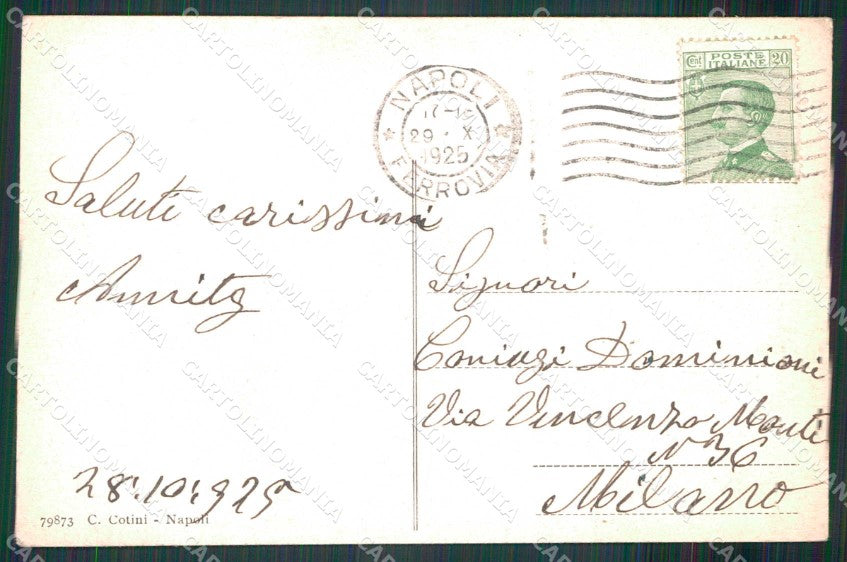 NAPOLI
29 · X
1925
FERROVIA
Cent POSTE ITALIANE 20
Saluti carissimi
28.10.925
79873 C. Cotini - Napoli
Signori
Coniugi Dominioni
Via Vincenzo Monti
N 36
Milano
CARTOLINOMANIA